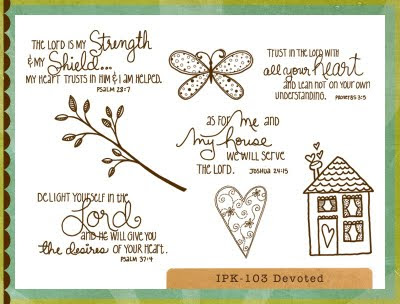 THE LORD IS MY Strength
& MY Shield...
MY HEART TRUSTS IN HIM & I AM HELPED.
PSALM 28:7
TRUST IN THE LORD WITH
all your heart
AND LEAN NOT ON YOUR OWN
UNDERSTANDING. PROVERBS 3:5
AS FOR me AND
my house
WE WILL SERVE
THE LORD. JOSHUA 24:15
DELIGHT YOURSELF IN THE
Lord
AND HE WILL GIVE YOU
the desires OF YOUR HEART.
PSALM 37:4
IPK-103 Devoted